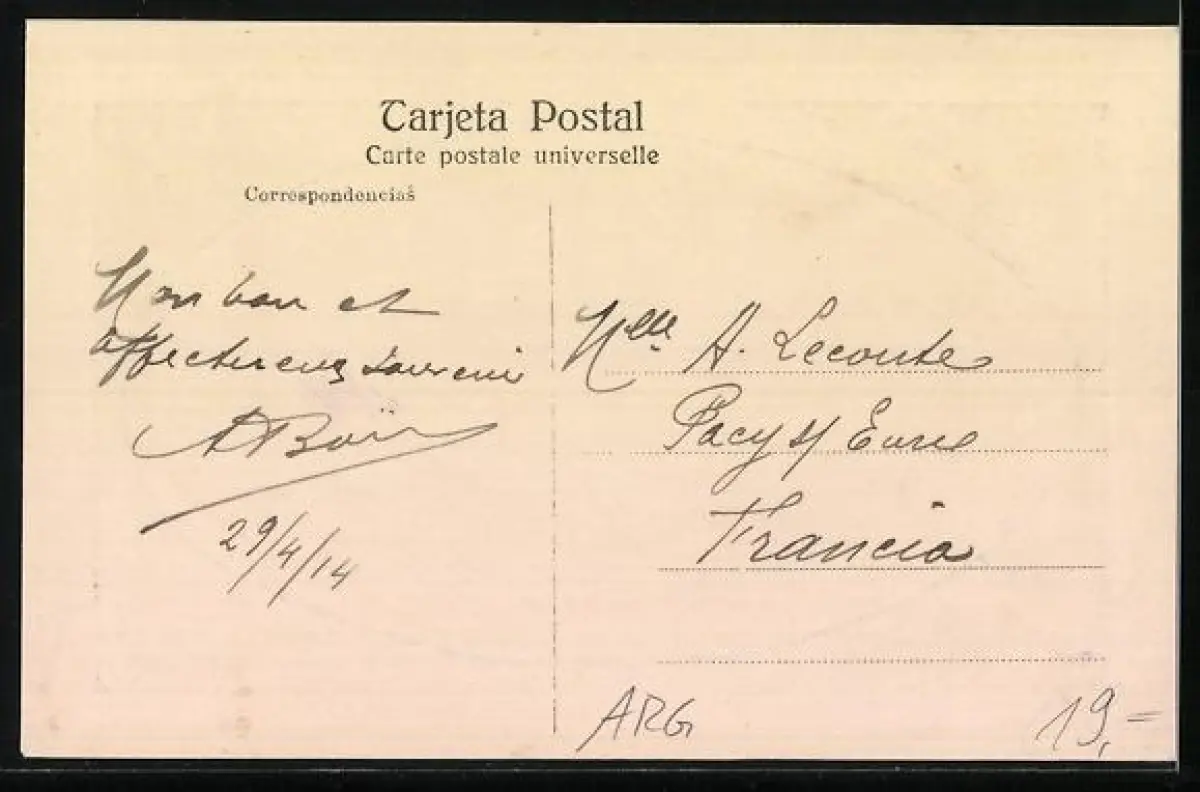 Tarjeta Postal
Carte postale universelle
Correspondencias
Mon bon et
affectueux souvenir
A
29/4/14
Mlle A. Leconte
Pacy s/ Eure
Francia
ARG
19,=